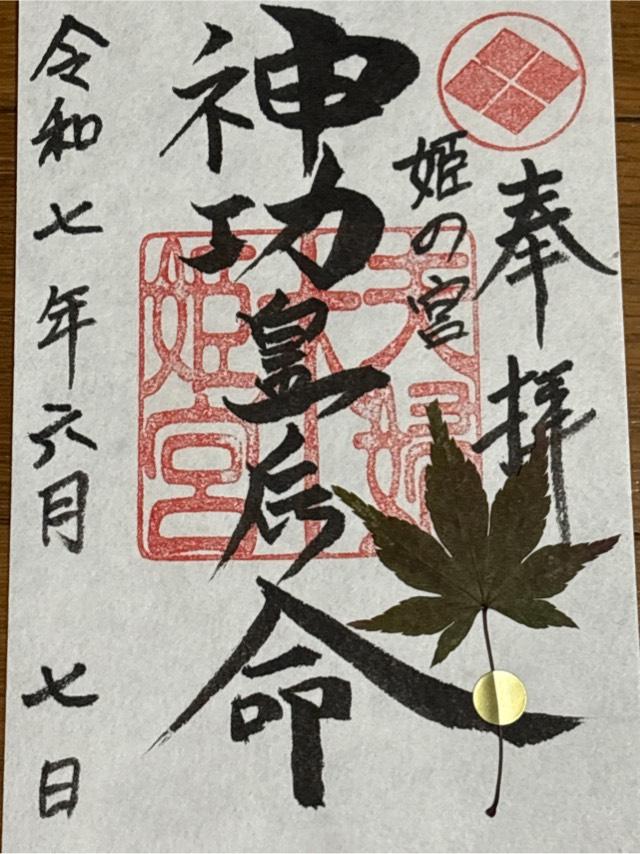 奉拝
姫の宮
神功皇后命
夫婦
木
姫宮
令和七年六月七日